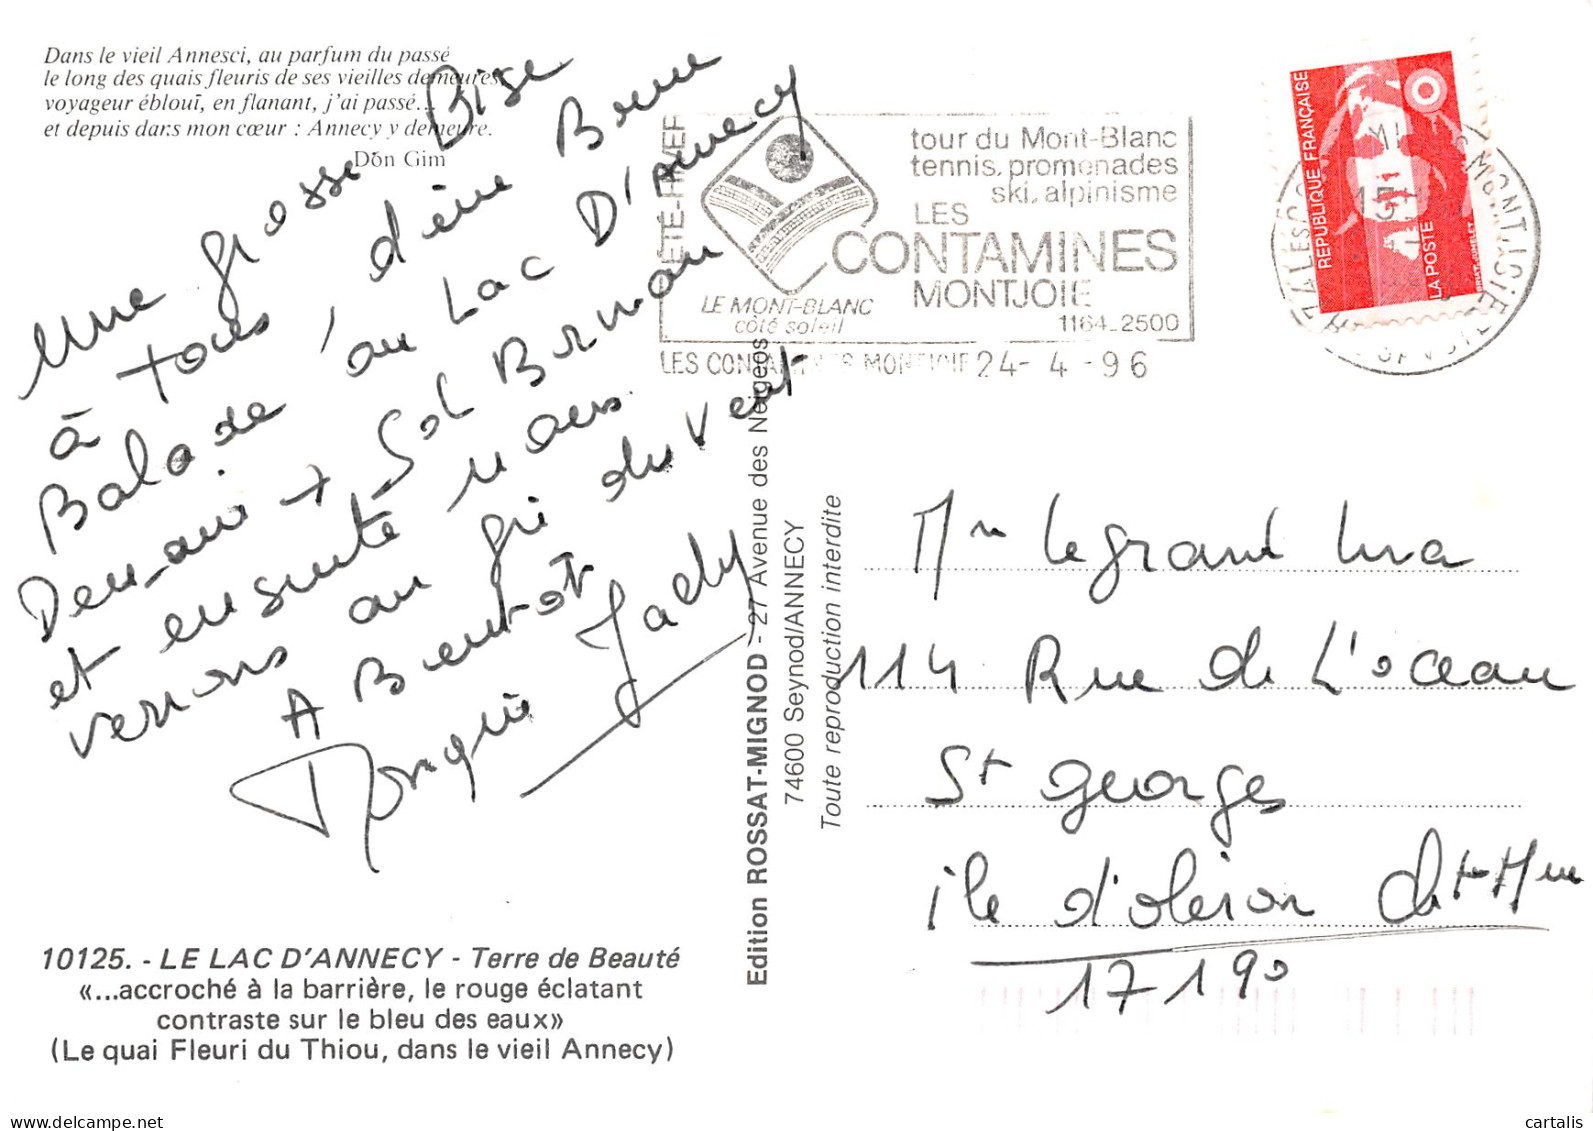 Dans le vieil Annesci, au parfum du passé
le long des quais fleuris de ses vieilles demeures,
voyageur éblouï, en flanant, j'ai passé...
et depuis dans mon cœur : Annecy y demeure.
Dŏn Gim
Une grosse Bise
à tous, d'une Breve
Balade au Lac D'Annecy
Demain → Sol
et ensuite nous
verrons au gré du Vent
A Bientot
Jacky
10125. - LE LAC D'ANNECY - Terre de Beauté
«...accroché à la barrière, le rouge éclatant
contraste sur le bleu des eaux»
(Le quai Fleuri du Thiou, dans le vieil Annecy)
Edition ROSSAT-MIGNOD - 27 Avenue des Neigeos
74600 Seynod/ANNECY
Toute reproduction interdite
ETE-HIVER
tour du Mont-Blanc
tennis, promenades
ski, alpinisme
LES
CONTAMINES
MONTJOIE
LE MONT-BLANC
côté soleil
1164-2500
LES CONTAMINES MONTJOIE 24- 4 -96
REPUBLIQUE FRANÇAISE
LA POSTE
HTE SAVOIE
Mr Legrand
114 Rue de L'ocean
St georges
ile d'oleron
17190
cartalis